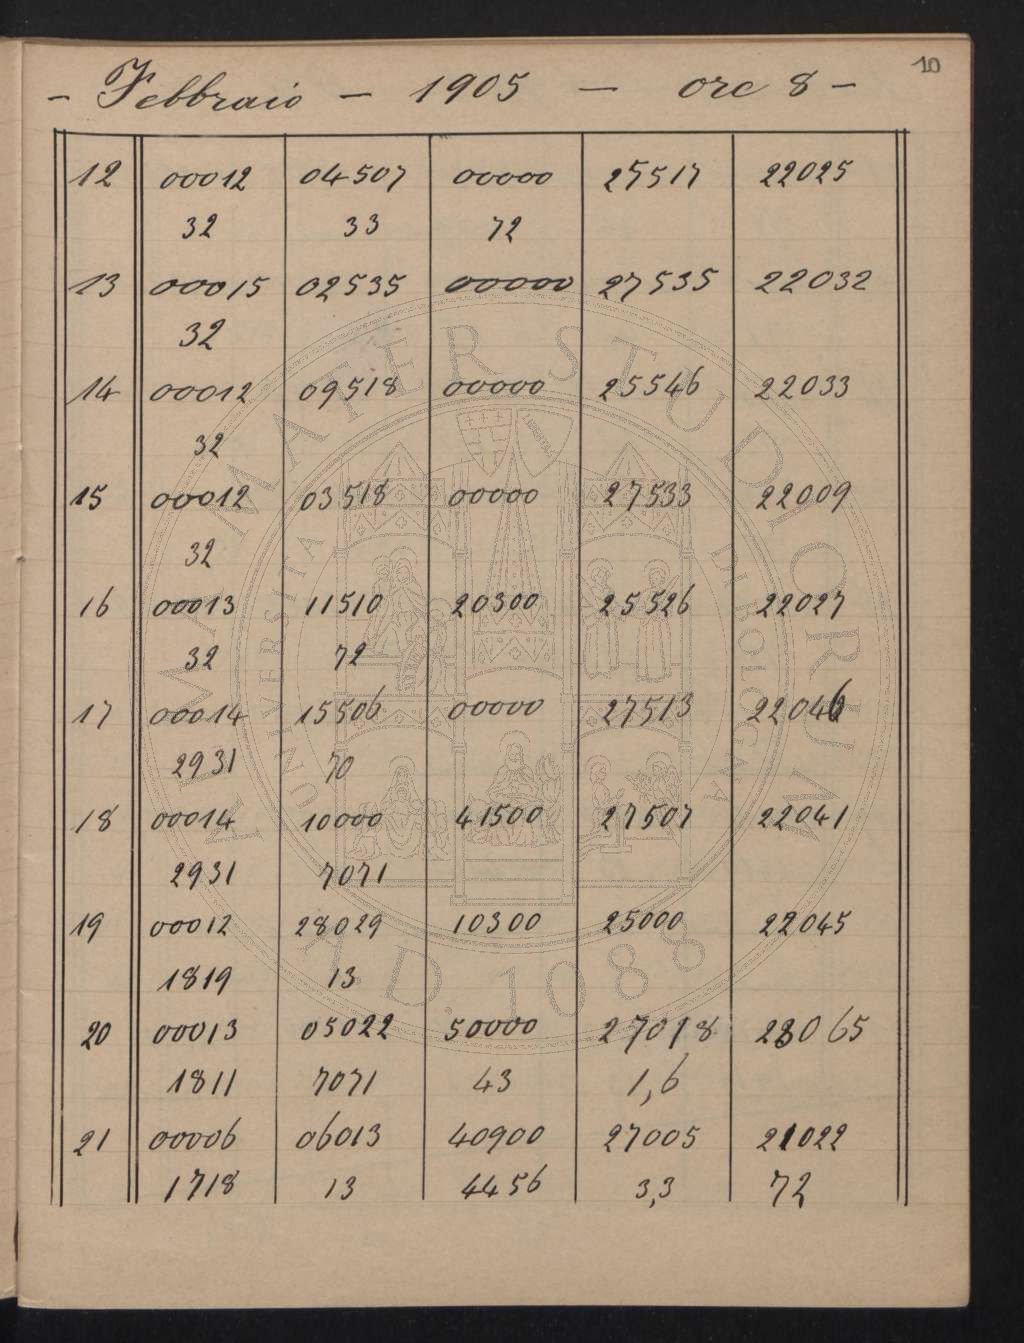 10
- Febbraio - 1905 - ore 8 -
12 00012 04507 00000 25517 22025
32 33 72
13 00015 02535 00000 27535 22032
32
14 00012 09518 00000 25546 22033
32
15 00012 03518 00000 27533 22009
32
16 00013 11510 20300 25526 22027
32 72
17 00014 15506 00000 27513 22046
2931 70
18 00014 10000 41500 27507 22041
2931 7071
19 00012 28029 10300 25000 22045
1819 13
20 00013 05022 50000 27018 23065
1811 7071 43 1,6
21 00006 06013 40900 27005 21022
1718 13 4456 3,3 72
ALMA MATER STUDIORUM
UNIVERSITA DI BOLOGNA
A.D. 1088